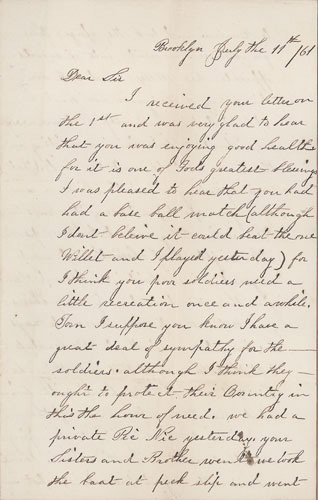 Brooklyn July the 11th /61
Dear Sir
I received your letter on
the 1st and was very glad to hear
that you was enjoying good health
for it is one of Gods greatest blesings
I was pleased to hear that you had
had a base ball match (although
I dont beleive it could beat the one
Willet and I played yesterday) for
I think you poor soldiers need a
little recreation once and a while.
Tom I suppose you know I have a
great deal of sympathy for the
soldiers. although I think they
ought to protect their Country in
this the hour of need. we had a
private Pic Nic yesterday. your
Sisters and Brother went we took
the boat at peck slip and went